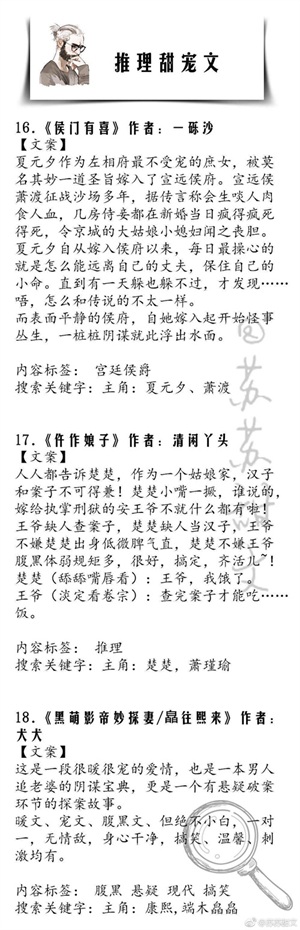 推理甜宠文
16.《侯门有喜》作者：一砾沙
【文案】
夏元夕作为左相府最不受宠的庶女，被莫
名其妙一道圣旨嫁入了宣远侯府。宣远侯
萧渡征战沙场多年，据传言称会生啖人肉
食人血，几房侍妾都在新婚当日疯得疯死
得死，令京城的大姑娘小媳妇闻之丧胆。
夏元夕自从嫁入侯府以来，每日最操心的
就是怎么能远离自己的丈夫，保住自己的
小命。直到有一天躲也躲不过，才发现……
唔，怎么和传说的不太一样。
而表面平静的侯府，自她嫁入起开始怪事
丛生，一桩桩阴谋就此浮出水面。
内容标签： 宫廷侯爵
搜索关键字：主角：夏元夕、萧渡
17.《仵作娘子》作者：清闲丫头
【文案】
人人都告诉楚楚，作为一个姑娘家，汉子
和案子不可得兼！楚楚小嘴一撅，谁说的，
嫁给执掌刑狱的安王爷不就什么都有啦！
王爷缺人查案子，楚楚缺人当汉子，王爷
不嫌楚楚出身低微脾气直，楚楚不嫌王爷
腹黑体弱规矩多，很好，搞定，齐活儿~！
楚楚（舔舔嘴唇看）：王爷，我饿了。
王爷（淡定看卷宗）：查完案子才能吃……
饭。
内容标签： 推理
搜索关键字：主角：楚楚，萧瑾瑜
18.《黑萌影帝妙探妻/皛往熙来》作者：
犬犬
【文案】
这是一段很暖很宠的爱情，也是一本男人
追老婆的阴谋宝典，更是一个有悬疑破案
环节的探案故事。
暖文、宠文、腹黑文、但绝不小白，一对
一，无情敌，身心干净，搞笑、温馨、刺
激均有。
内容标签： 腹黑 悬疑 现代 搞笑
搜索关键字：主角：康熙,端木皛皛
@苏苏甜文